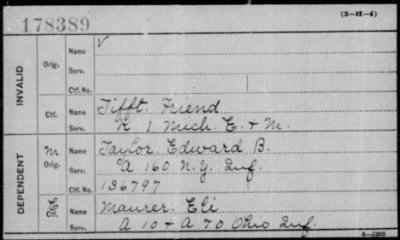 178389
(3-II-4)
INVALID
Orig.
Name
√
Serv.
Ctf. No.
Ctf.
Name Tifft. Friend
Serv. K 1 Mich. E. & M.
DEPENDENT
M Orig.
Name Taylor Edward B.
Serv. A 160 N.Y. Inf.
Ctf. No. 136797
C Ctf.
Name Maurer. Eli
Serv. A 10 + A 70 Ohio Inf.